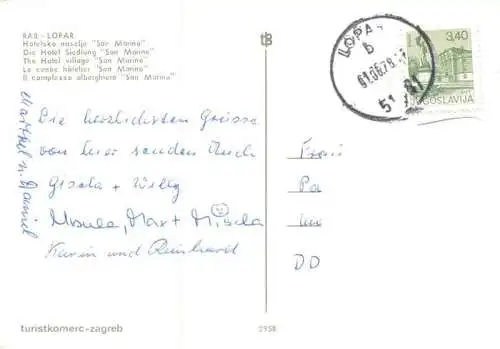 RAB - LOPAR
Hotelsko naselje "San Marino"
Die Hotel Siedlung "San Marino"
The Hotel village "San Marino"
Le centre hôtelier "San Marino"
Il complesso alberghiero "San Marino"
LOPAR
b
51 81
3,40
JUGOSLAVIJA
Die herzlichsten Grüsse
von hier senden Euch
Gisela + Willy
Ursula, Max + Misela
Karin und Reinhard
Daniel
Frau
Pa
DD
turistkomerc-zagreb
2958